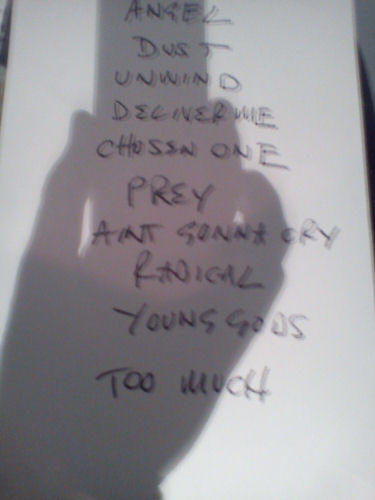 ANGEL
DUST
UNWIND
DELIVER ME
CHOSEN ONE
PREY
AINT GONNA CRY
RADICAL
YOUNG GODS
TOO MUCH